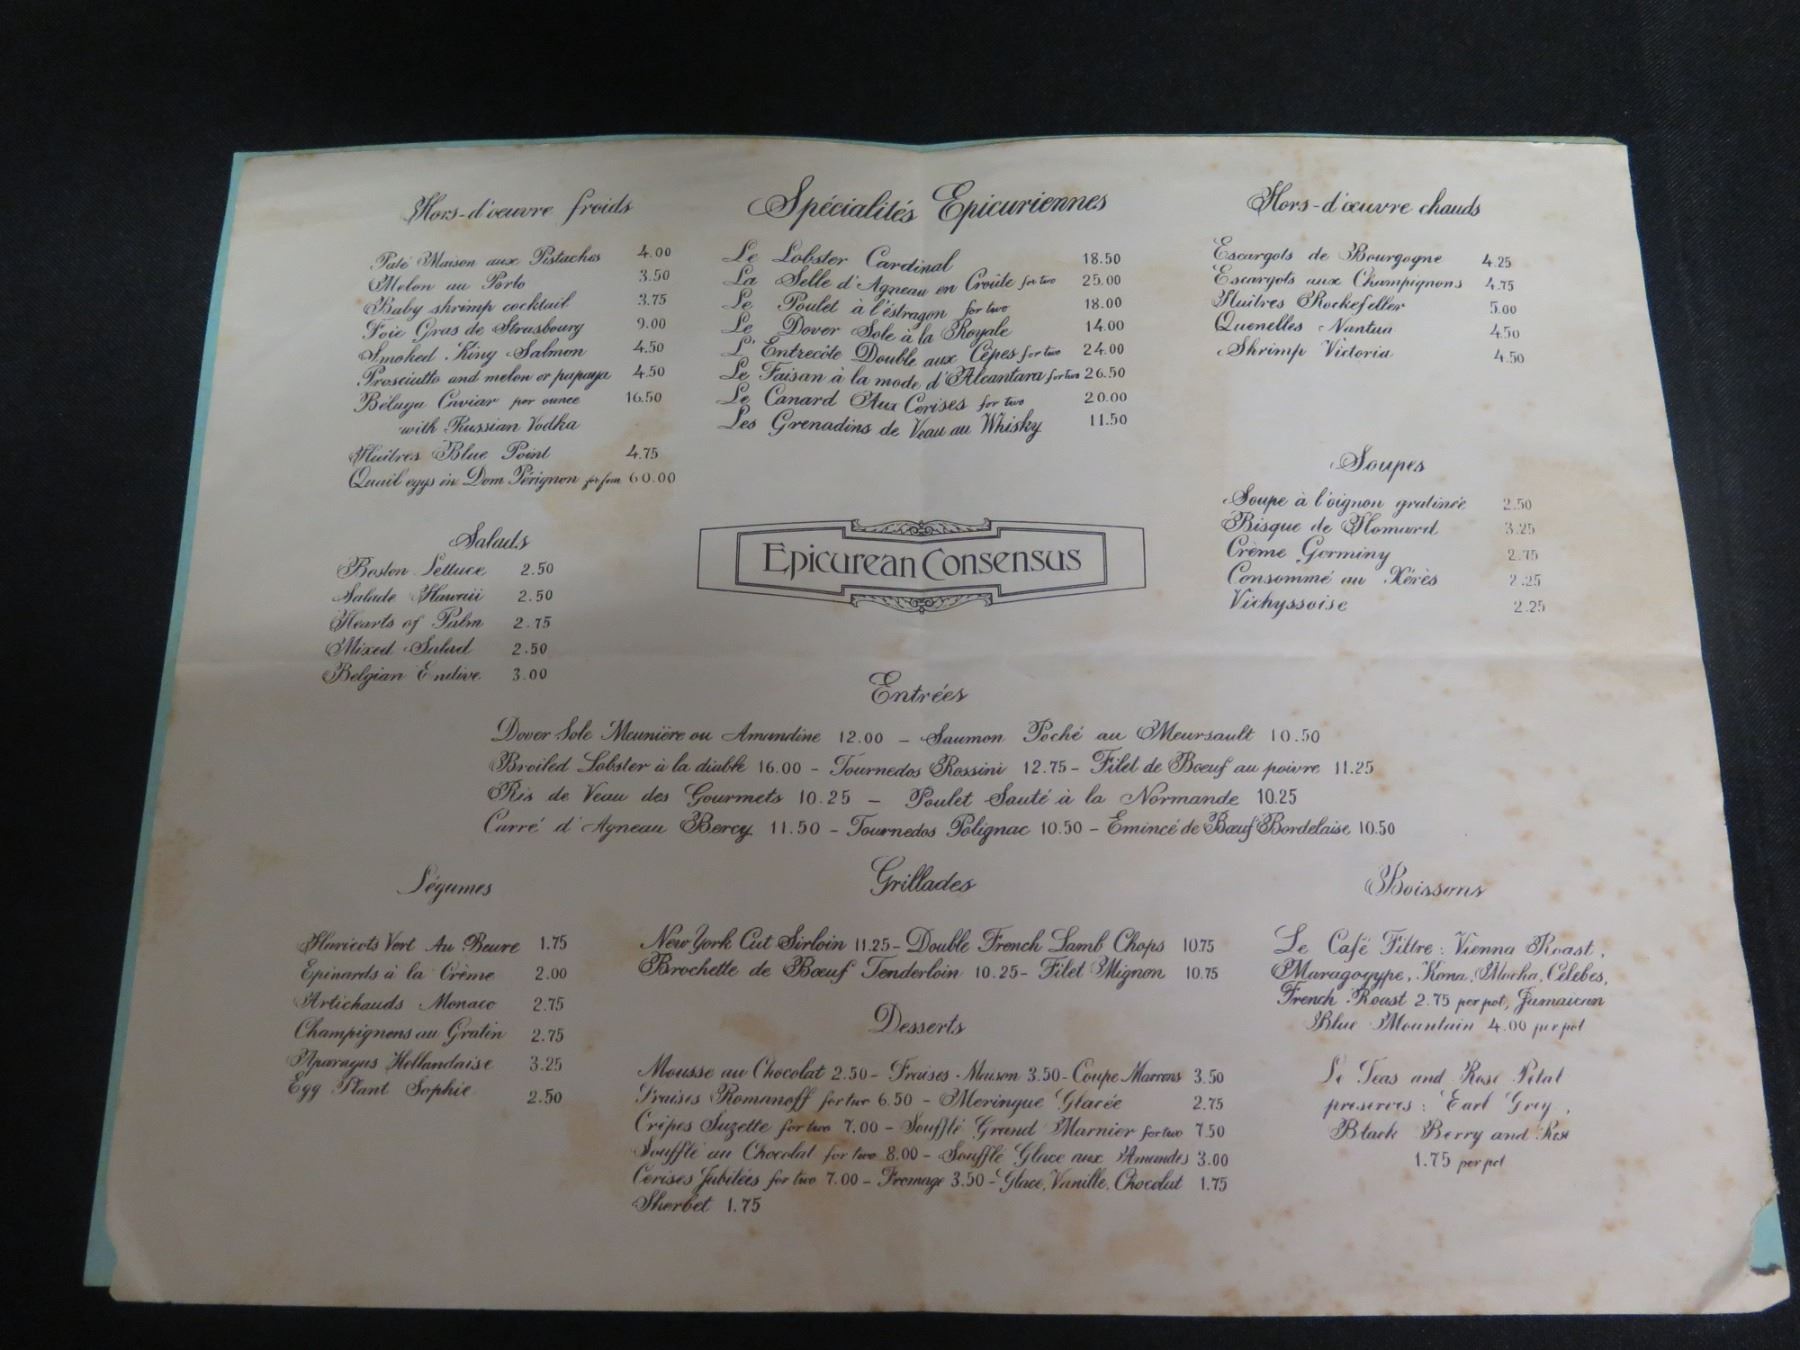 Hors-d'œuvre froids
Paté Maison aux Pistaches 4.00
Melon au Porto 3.50
Baby shrimp cocktail 3.75
Foie Gras de Strasbourg 9.00
Smoked King Salmon 4.50
Prosciutto and melon or papaya 4.50
Béluga Caviar per ounce 16.50
with Russian Vodka
Huîtres Blue Point 4.75
Quail eggs in Dom Pérignon for four 60.00
Salads
Boston Lettuce 2.50
Salade Hawaii 2.50
Hearts of Palm 2.75
Mixed Salad 2.50
Belgian Endive 3.00
Spécialités Epicuriennes
Le Lobster Cardinal 18.50
La Selle d'Agneau en Croûte for two 25.00
Le Poulet à l'éstragon for two 18.00
Le Dover Sole à la Royale 14.00
L'Entrecôte Double aux Cêpes for two 24.00
Le Faisan à la mode d'Alcantara for two 26.50
Le Canard Aux Cerises for two 20.00
Les Grenadins de Veau au Whisky 11.50
Epicurean Consensus
Hors-d'œuvre chauds
Escargots de Bourgogne 4.25
Escargots aux Champignons 4.75
Huîtres Rockefeller 5.00
Quenelles Nantua 4.50
Shrimp Victoria 4.50
Soupes
Soupe à l'oignon gratinée 2.50
Bisque de Homard 3.25
Crème Germiny 2.75
Consommé au Xérès 2.25
Vichyssoise 2.25
Entrées
Dover Sole Meunière ou Amandine 12.00 - Saumon Poché au Meursault 10.50
Broiled Lobster à la diable 16.00 - Tournedos Rossini 12.75 - Filet de Boeuf au poivre 11.25
Ris de Veau des Gourmets 10.25 - Poulet Sauté à la Normande 10.25
Carré d'Agneau Bercy 11.50 - Tournedos Polignac 10.50 - Emincé de Bœuf Bordelaise 10.50
Légumes
Haricots Vert Au Beure 1.75
Epinards à la Crème 2.00
Artichauds Monaco 2.75
Champignons au Gratin 2.75
Aparagus Hollandaise 3.25
Egg Plant Sophie 2.50
Grillades
New York Cut Sirloin 11.25 - Double French Lamb Chops 10.75
Brochette de Bœuf Tenderloin 10.25 - Filet Mignon 10.75
Desserts
Mousse au Chocolat 2.50 - Fraises Maison 3.50 - Coupe Marrons 3.50
Fraises Romanoff for two 6.50 - Meringue Glacée 2.75
Crêpes Suzette for two 7.00 - Soufflé Grand Marnier for two 7.50
Soufflé au Chocolat for two 8.00 - Soufflé Glace aux Amandes 3.00
Cerises Jubilées for two 7.00 - Fromage 3.50 - Glace, Vanille, Chocolat 1.75
Sherbet 1.75
Boissons
Le Café Filtre: Vienna Roast,
Maragogype, Kona, Mocha, Célebes,
French Roast 2.75 per pot, Jamaican
Blue Mountain 4.00 per pot
Le Teas and Rose Petal
preserves: Earl Grey,
Black Berry and Rose
1.75 per pot